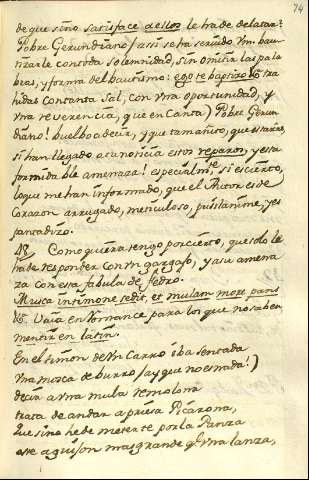 74
de que sino satisface a ellos le ha de delatar?
Pobre Gerundiano! assi se ha servido Vm. bau-
tizarle con toda solemnidad, sin omitir las pala
bras, y forma del bautismo: ego te baptizo &
tradas con tanta sal, con una oportunidad, y
una reverencia, que encanta) Pobre Gerun-
diano! buelbo a decir, y que tamañito, que estaras
si han llegado a tu noticia estos reparos, y esta
formidable amenaza! especialmte si es cierto,
lo que me han informado, que el Autor es de
Corazon arrugado, meticuloso, pusilanime, y es
pantadizo.
Como quiera tengo por cierto, que solo le
ha de responder con un gargajo, y a su amena
za con esta fabula de Fedro.
Musca in timone sedit, et mulam increpans
&. Vaya en Romance para los que no saben
mentir en latin.
En el timon de un Carro iba sentada
Una mosca de burro (ay que no es nada!)
decia a una mula remolona
trata de andar a priesa Picarona,
Que sino he de meterte por la Panza
este aguijon mas grande q una lanza,